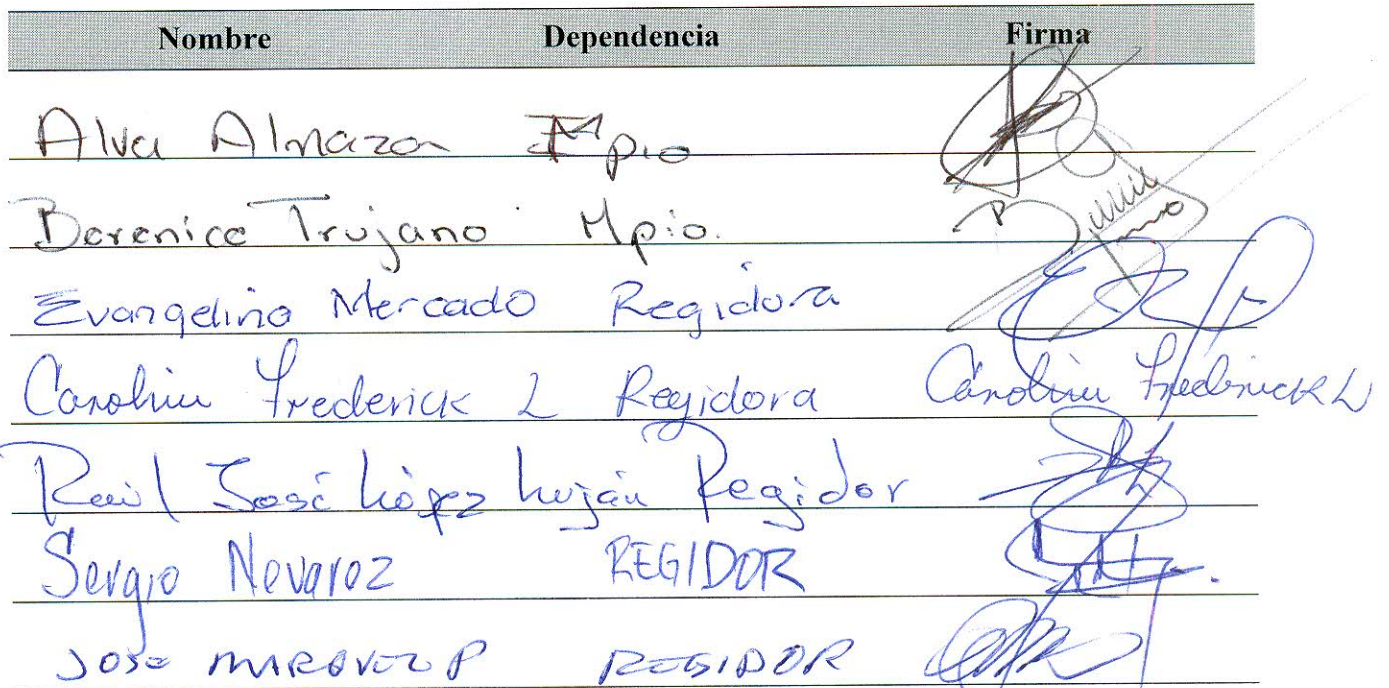 Nombre Dependencia Firma
Alva Almazan Mpio
Berenice Trujano Mpio.
Evangelina Mercado Regidora
Carolina Frederick L Regidora Carolina Frederick L
Raúl José López Luján Regidor
Sergio Nevarez REGIDOR
JOSE MARQUEZ P REGIDOR